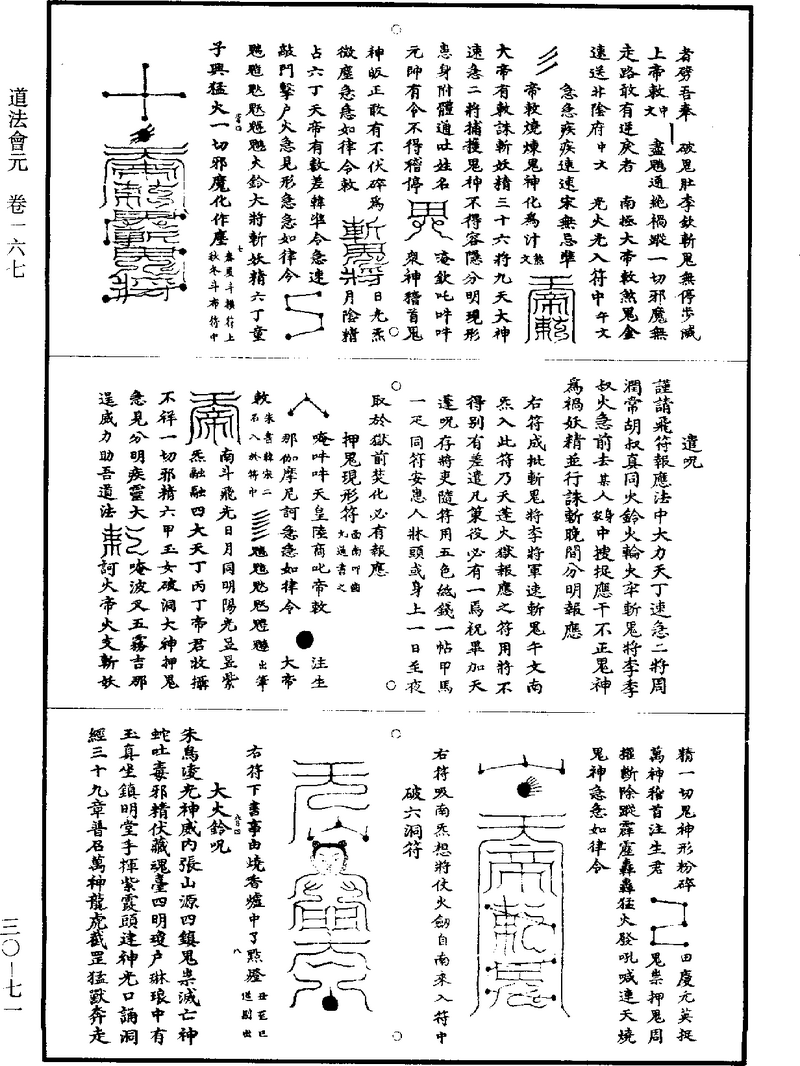 道法會元　卷一六七
三〇—七一
者劈吾奉　破鬼肚李欽斬鬼無停步滅
上帝敕中文　盡魑通絶禍蹤一切邪魔無
走路敢有違戾者　南極大帝敕煞鬼金
速送北陰府中文　光火光入符中午文
急急疾疾速速宋無忌犟
帝敕燒煉鬼神化為汁
大帝有敕誅斬妖精三十六將九天大神
速急二將捕獲鬼神不得容隱分明現形
患身附體通吐姓名　唵欽吒吽吽
元帥有令不得稽停　衆神稽首鬼
神皈正敢有不伏碎為　日光炁
微塵急急如律令敕　月陰精
占六丁天帝有敕差韓犟令急速
敲門擊户火急見形急急如律令
火鈴大將斬妖精六丁童
子興猛火一切邪魔化作塵
秋冬斗布符中
遣呪
謹請飛符報應法中大力天丁速急二將周
潤常胡叔真同火鈴火輪火牢斬鬼將李季
叔火急前去某人家身中搜捉應干不正鬼神
為禍妖精並行誅斬曉間分明報應
右符成批斬鬼將李將軍速斬鬼午文南
炁入此符乃天蓬火獄報應之符用將不
得別有差遣凡策役必有一焉祝畢加天
蓬呪存將吏隨符用五色紙錢一帖甲馬
一疋同符安患人牀頭或身上一日至夜
取於獄前焚化必有報應
押鬼現形符
唵吽吽天皇陸商叱帝敕　注生
那伽摩尼訶急急如律令　大帝
敕朱書韓宋二石入於符中
南斗飛光日月同明陽光昱昱紫
炁融融四大天丁丙丁帝君收攝
不祥一切邪精六甲玉女破洞大神押鬼
急見分明疾靈大　唵波叉五霧吉那
逞威力助吾道法　訶火帝火支斬妖
精一切鬼神形粉碎　田慶元英捉
萬神稽首注生君　鬼祟押鬼周
擢斷除蹤霹靂轟轟猛火發吼喊連天燒
鬼神急急如律令
右符吸南炁想將仗火劒自南來入符中
破六洞符
右符下書事由燒香爐中了點燈
大火鈴呪
朱鳥凌光神威内張山源四鎮鬼祟滅亡神
蛇吐毒邪精伏藏魂臺四明瓊户琳琅中有
玉真坐鎮明堂手揮紫霞頭建神光口誦洞
經三十九章普召萬神龍虎截罡猛獸奔走